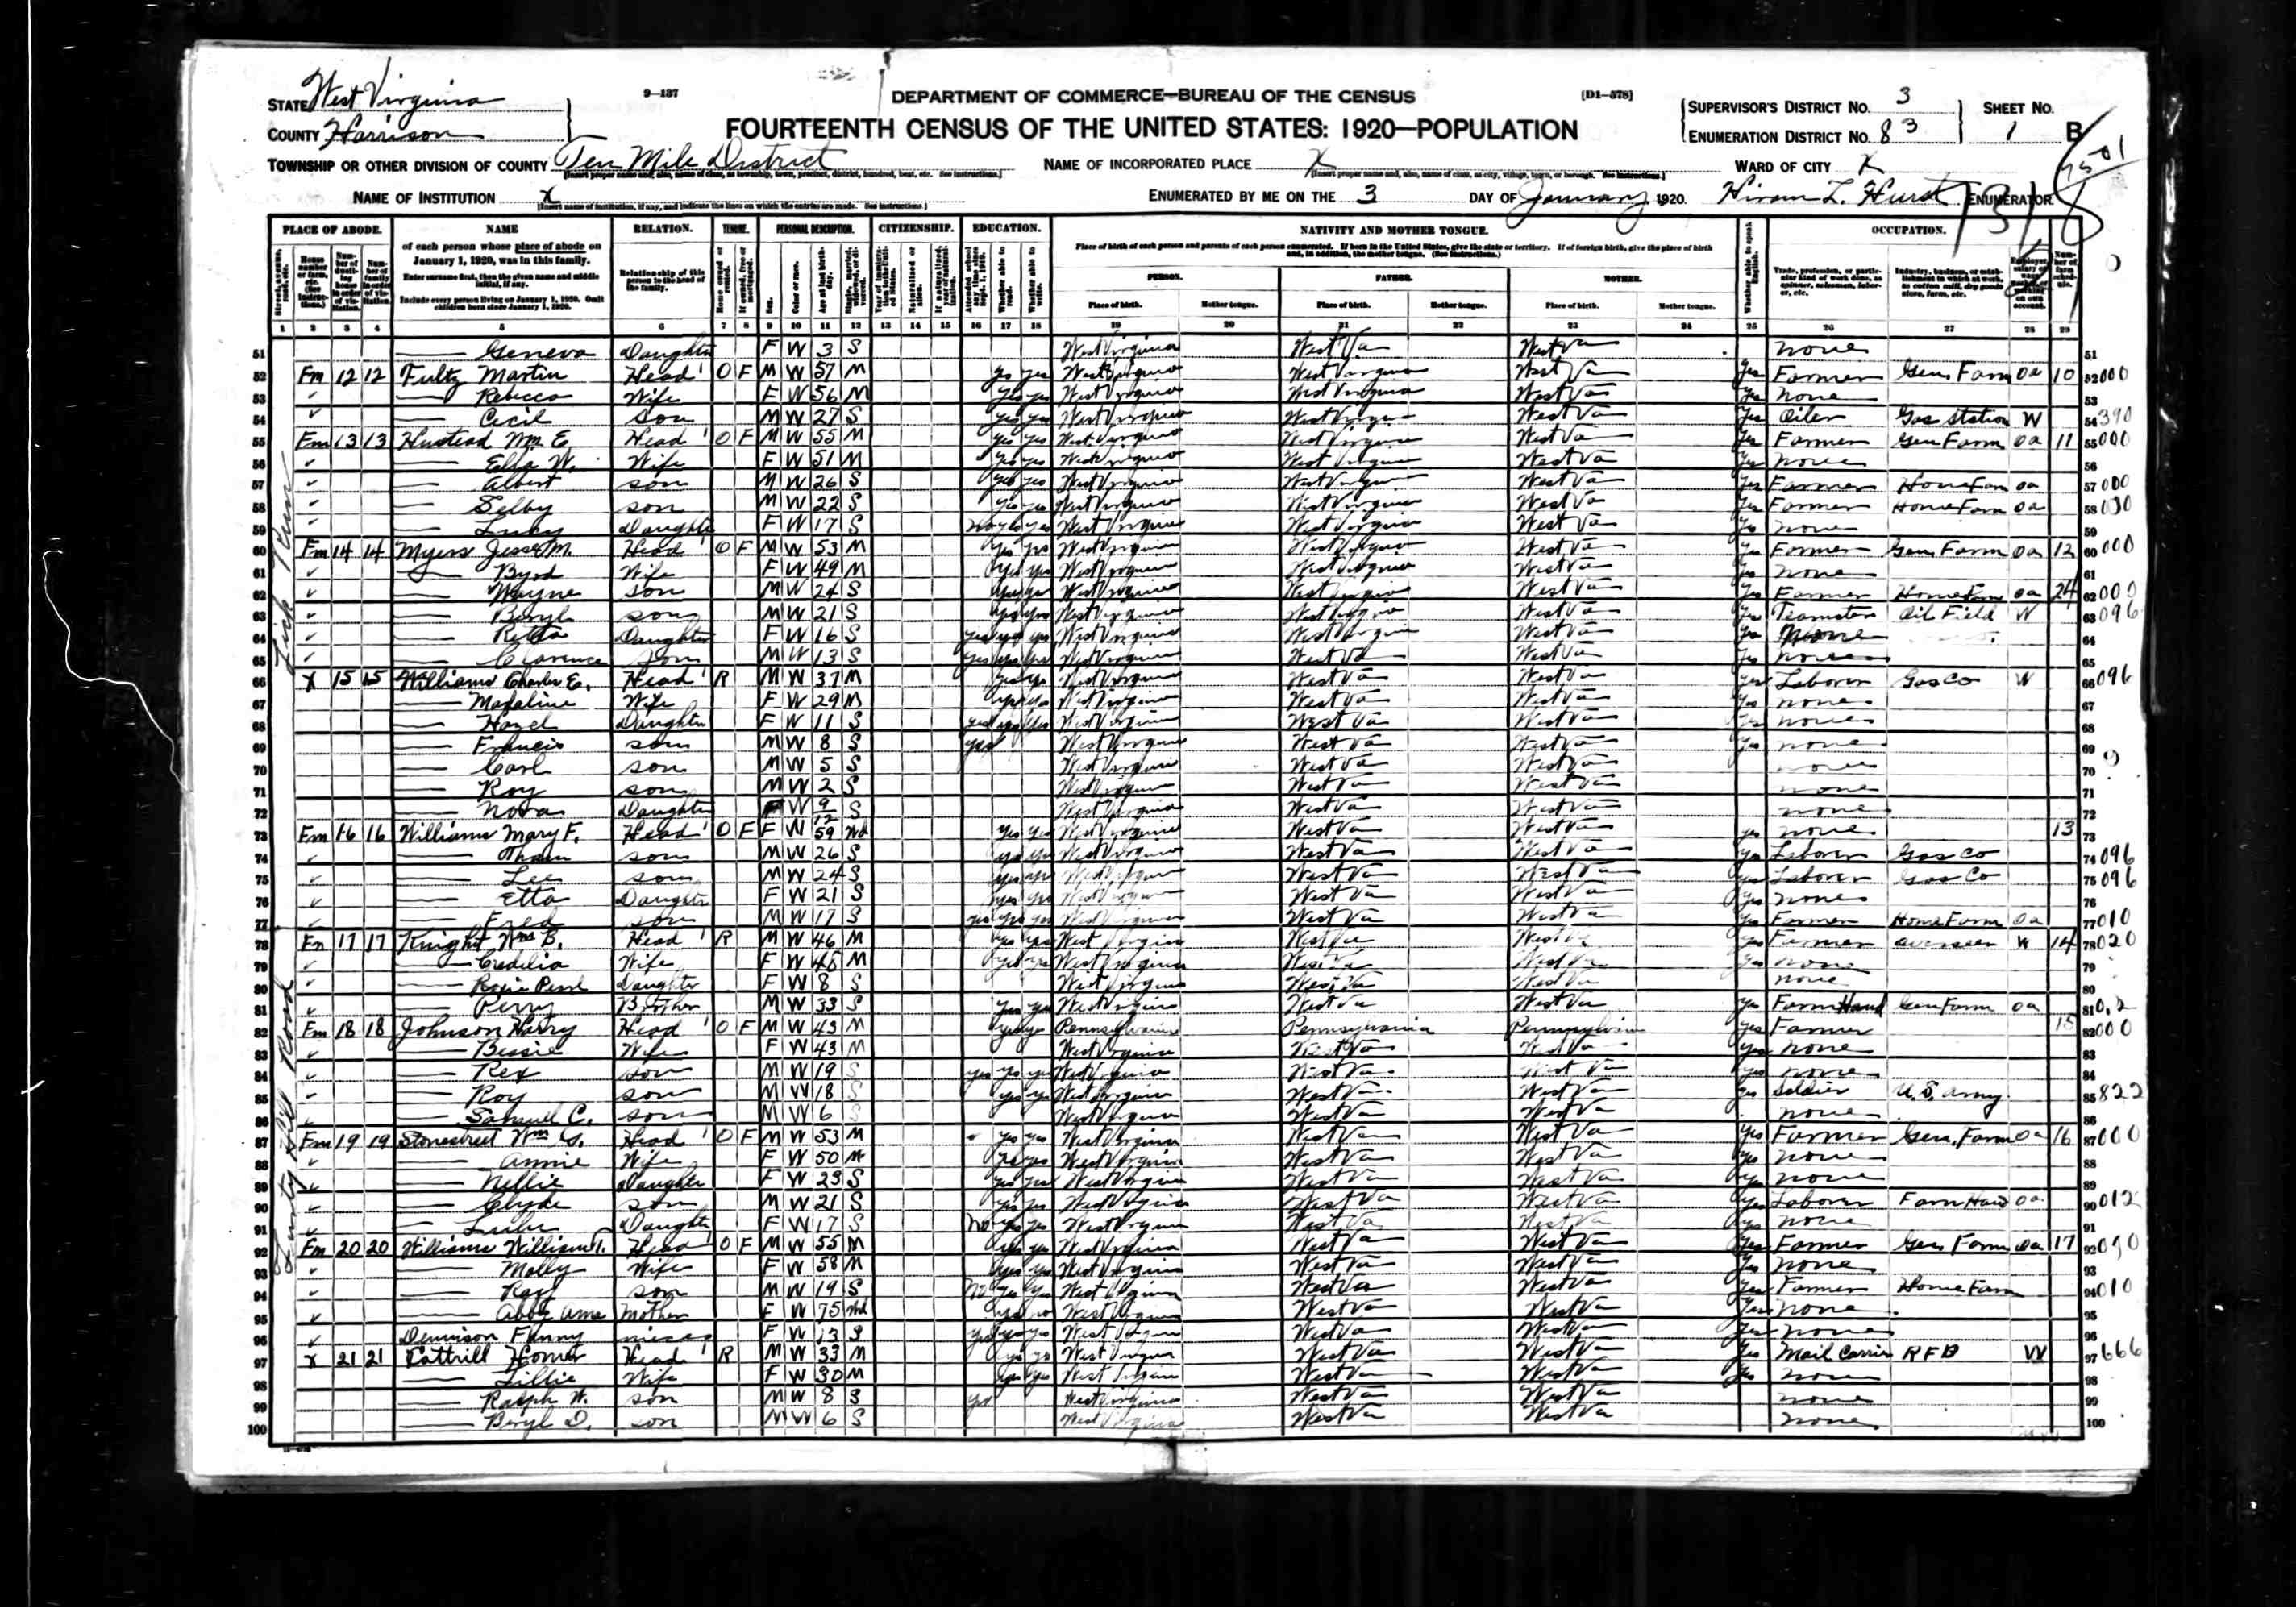 STATE West Virginia
COUNTY Harrison
9—137
DEPARTMENT OF COMMERCE—BUREAU OF THE CENSUS
[D1—578]
FOURTEENTH CENSUS OF THE UNITED STATES: 1920—POPULATION
SUPERVISOR'S DISTRICT No. 3
ENUMERATION DISTRICT No. 83
SHEET No. 1 B
7501
TOWNSHIP OR OTHER DIVISION OF COUNTY Ten Mile District
NAME OF INCORPORATED PLACE X
WARD OF CITY X
NAME OF INSTITUTION X
ENUMERATED BY ME ON THE 3 DAY OF January, 1920. Hiram L. Hurst, ENUMERATOR.
PLACE OF ABODE. NAME RELATION. TENURE. PERSONAL DESCRIPTION. CITIZENSHIP. EDUCATION. NATIVITY AND MOTHER TONGUE. OCCUPATION.
of each person whose place of abode on January 1, 1920, was in this family.
Enter surname first, then the given name and middle initial, if any.
Include every person living on January 1, 1920. Omit children born since January 1, 1920.
Relationship of this person to the head of the family.
Place of birth of each person and parents of each person enumerated. If born in the United States, give the state or territory. If of foreign birth, give the place of birth and, in addition, the mother tongue. (See instructions.)
PERSON. FATHER. MOTHER.
Place of birth. Mother tongue. Place of birth. Mother tongue. Place of birth. Mother tongue.
1 2 3 4 5 6 7 8 9 10 11 12 13 14 15 16 17 18 19 20 21 22 23 24 25 26 27 28 29
Lick Run
51 — Geneva Daughter F W 3 S West Virginia West Va West Va none 51
52 Fm 12 12 Fultz Martin Head O F M W 57 M yes yes West Virginia West Virginia West Va Yes Farmer Gen Farm Oa 10 52 000
53 — Rebecca Wife F W 56 M yes yes West Virginia West Virginia West Va Yes none 53
54 — Cecil Son M W 27 S yes yes West Virginia West Virginia West Va Yes Oiler Gas Station W 54 390
55 Fm 13 13 Hustead Wm. E. Head O F M W 55 M yes yes West Virginia West Virginia West Va Yes Farmer Gen Farm Oa 11 55 000
56 — Ella W. Wife F W 51 M yes yes West Virginia West Virginia West Va Yes none 56
57 — Albert son M W 26 S yes yes West Virginia West Virginia West Va Yes Farmer Home Farm oa 57 000
58 — Selby son M W 22 S yes yes West Virginia West Virginia West Va Yes Farmer Home Farm oa 58
59 — Daughter F W 17 S No yes yes West Virginia West Virginia West Va Yes none 59
60 Fm 14 14 Myers Jesse M. Head O F M W 53 M yes yes West Virginia West Virginia West Va Yes Farmer Gen Farm Oa 12 60 000
61 — Byrd Wife F W 49 M yes yes West Virginia West Virginia West Va Yes none 61
62 — Wayne Son M W 24 S yes yes West Virginia West Virginia West Va Yes Farmer Home Farm oa 24 62 000
63 — Beryl son M W 21 S yes yes West Virginia West Virginia West Va Yes Teamster Oil Field W 63 096
64 — Daughter F W 16 S yes yes yes West Virginia West Virginia West Va Yes None 64
65 — Clarence Son M W 13 S yes yes yes West Virginia West Va West Va Yes none 65
66 X 15 15 Williams Charles E. Head R M W 37 M yes yes West Virginia West Va West Va Yes Laborer Gas Co W 66 096
67 — Madaline Wife F W 29 M yes yes West Virginia West Va West Va Yes none 67
68 — Hazel Daughter F W 11 S yes yes yes West Virginia West Va West Va Yes none 68
69 — Francis son M W 8 S yes West Virginia West Va West Va Yes none 69
70 — Carl son M W 5 S West Virginia West Va West Va none 70
71 — Roy son M W 2 S West Virginia West Va West Va none 71
72 — Nora Daughter F W 9/12 S West Virginia West Va West Va none 72
73 Fm 16 16 Williams Mary F. Head O F F W 59 Wd yes yes West Virginia West Va West Va yes none 13 73
74 — son M W 26 S yes yes West Virginia West Va West Va Yes Laborer Gas Co 74 096
75 — Lee son M W 24 S yes yes West Virginia West Va West Va yes Laborer Gas Co 75 096
76 — Etta Daughter F W 21 S yes yes West Virginia West Va West Va Yes none 76
77 — Fred son M W 17 S yes yes yes West Virginia West Va West Va Yes Farmer Home Farm Oa 77 010
78 Fm 17 17 Knight Wm B. Head R M W 46 M yes yes West Virginia West Va West Va yes Farmer overseer W 14 78 020
County Hill Road
79 — Credilia Wife F W 45 M yes yes West Virginia West Va West Va Yes none 79
80 — Daughter F W 8 S West Virginia West Va West Va none 80
81 — Perry Brother M W 33 S yes yes West Virginia West Va West Va Yes Farm Hand Gen Farm oa 81 012
82 Fm 18 18 Johnson Harry Head O F M W 43 M yes yes Pennsylvania Pennsylvania Pennsylvania Yes Farmer 15 82 000
83 — Bessie Wife F W 43 M West Virginia West Va West Va Yes none 83
84 — Rex son M W 19 S yes yes yes West Virginia West Va West Va Yes none 84
85 — Roy son M W 18 S yes yes West Virginia West Va West Va Yes Soldier U.S. Army 85 822
86 — Samuel C. son M W 6 S West Virginia West Va West Va none 86
87 Fm 19 19 Stonestreet Wm Head O F M W 53 M yes yes West Virginia West Va West Va Yes Farmer Gen. Farm Oa 16 87 000
88 — Annie Wife F W 50 M yes yes West Virginia West Va West Va Yes none 88
89 — Nellie Daughter F W 23 S yes yes West Virginia West Va West Va Yes none 89
90 — Clyde son M W 21 S yes yes West Virginia West Va West Va Yes Laborer Farm Hand oa 90 012
91 — Lulu Daughter F W 17 S No yes yes West Virginia West Va West Va Yes none 91
92 Fm 20 20 Williams William Head O F M W 55 M yes yes West Virginia West Va West Va Yes Farmer Gen Farm Oa 17 92
93 — Molly Wife F W 58 M yes yes West Virginia West Va West Va Yes none 93
94 — Ray son M W 19 S No yes yes West Virginia West Va West Va Yes Farmer Home Farm 94 010
95 — Abby Ama Mother F W 75 Wd yes no West Virginia West Va West Va Yes none 95
96 Dennison Fanny niece F W 13 S yes yes yes West Virginia West Va West Va Yes none 96
97 X 21 21 Cottrill Homer Head R M W 33 M yes yes West Virginia West Va West Va Yes Mail Carrier RFD W 97 666
98 — Lillie Wife F W 30 M yes yes West Virginia West Va West Va Yes none 98
99 — Ralph W. son M W 8 S yes West Virginia West Va West Va none 99
100 — Beryl D. son M W 6 S West Virginia West Va West Va none 100